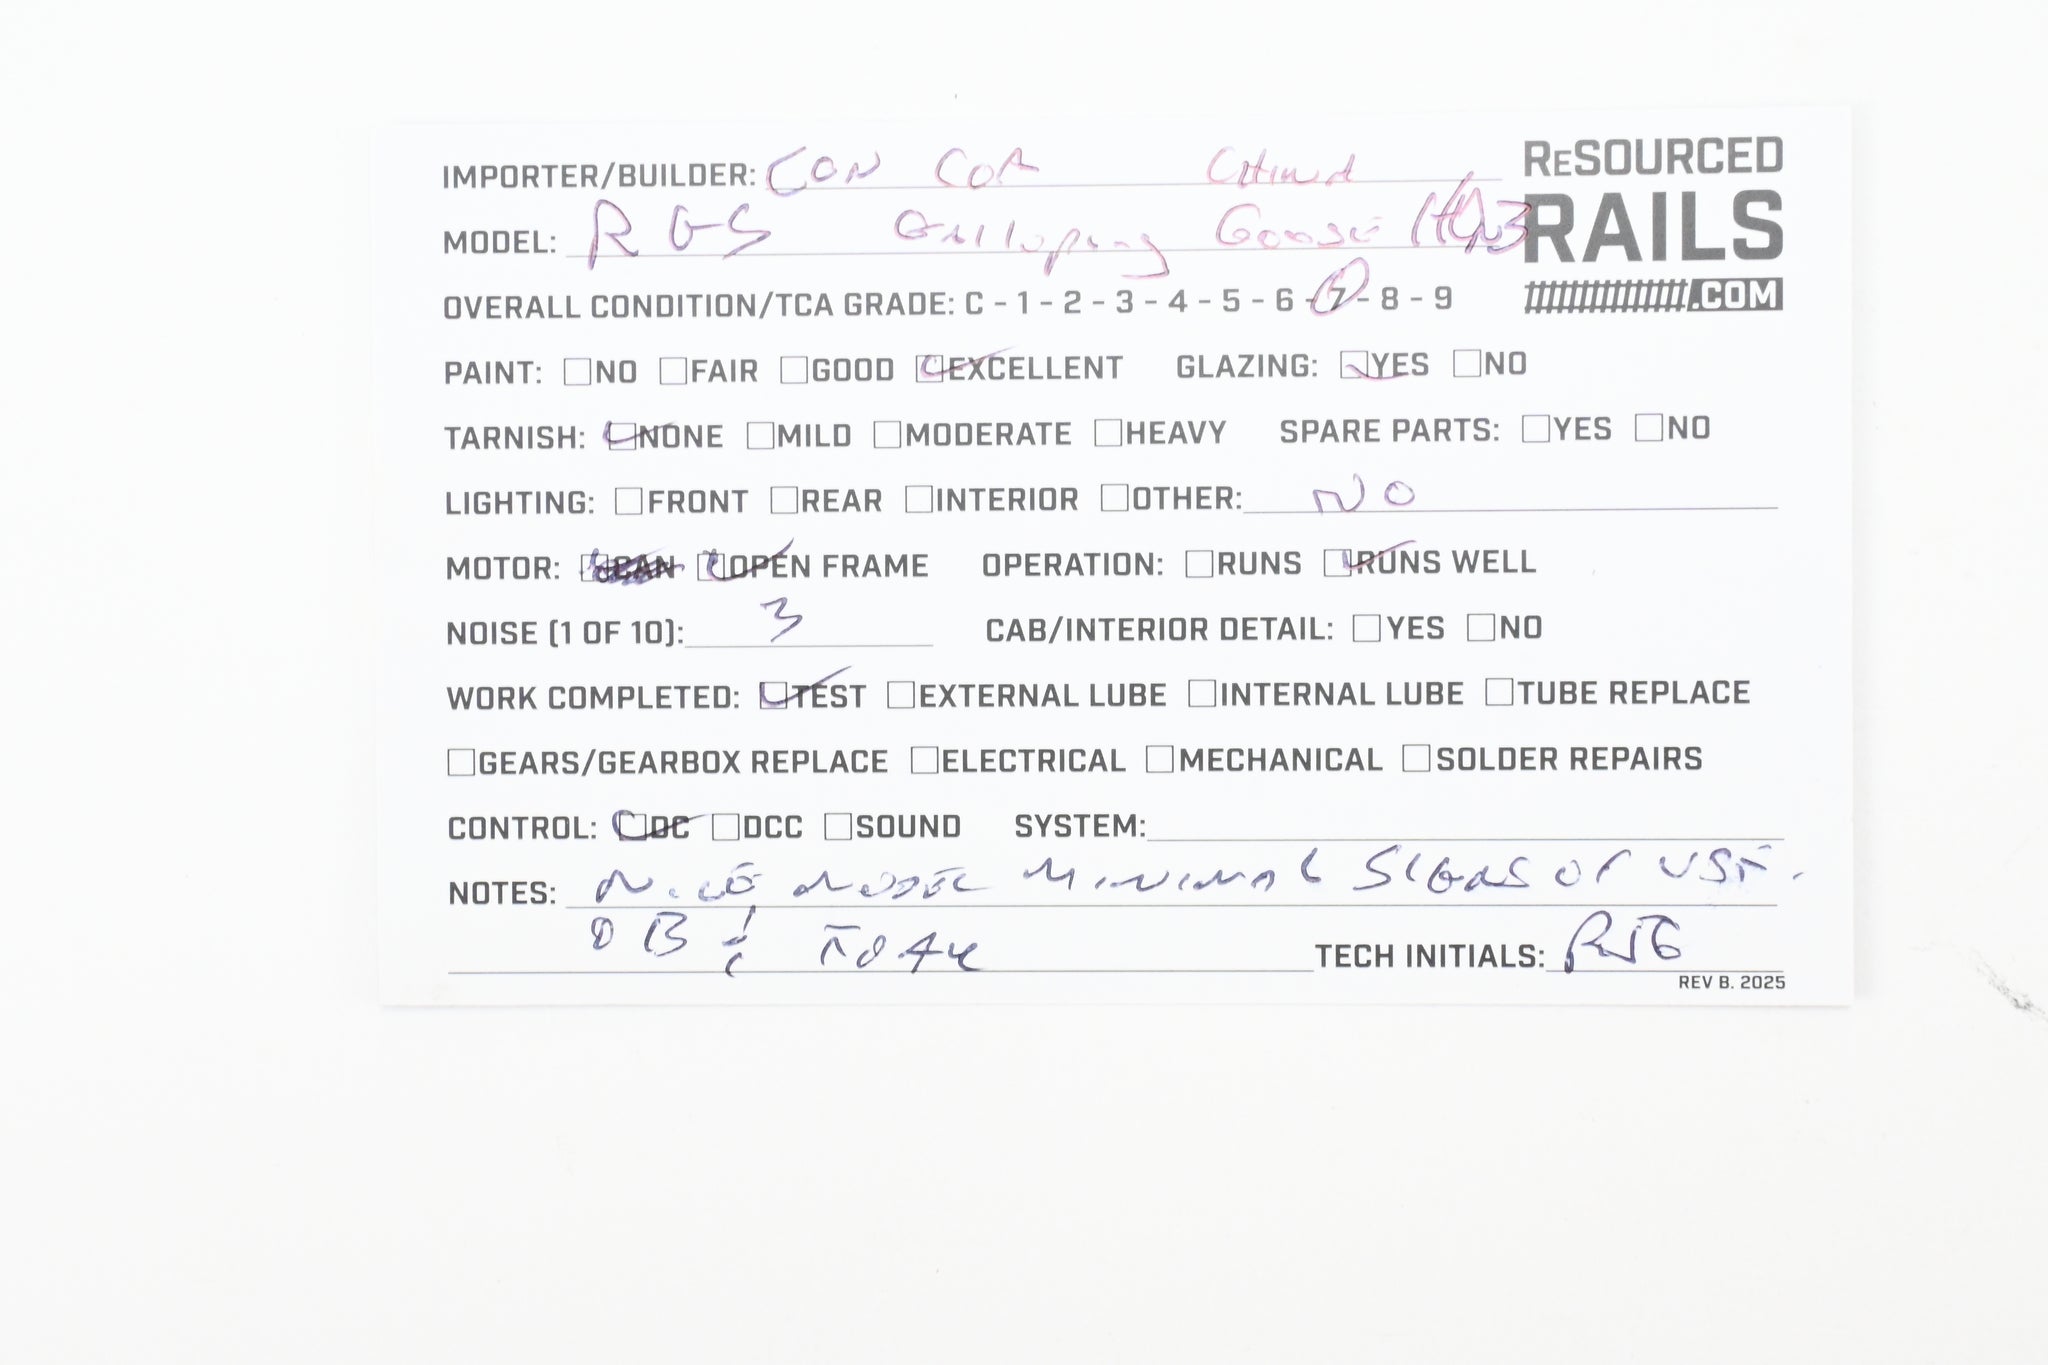 IMPORTER/BUILDER: CON COR CHINA
RESOURCED RAILS .COM
MODEL: RGS Galloping Goose HOn3
OVERALL CONDITION/TCA GRADE: C - 1 - 2 - 3 - 4 - 5 - 6 - 7 - 8 - 9
PAINT: NO FAIR GOOD EXCELLENT GLAZING: YES NO
TARNISH: NONE MILD MODERATE HEAVY SPARE PARTS: YES NO
LIGHTING: FRONT REAR INTERIOR OTHER: NO
MOTOR: CAN OPEN FRAME OPERATION: RUNS RUNS WELL
NOISE (1 OF 10): 3 CAB/INTERIOR DETAIL: YES NO
WORK COMPLETED: TEST EXTERNAL LUBE INTERNAL LUBE TUBE REPLACE
GEARS/GEARBOX REPLACE ELECTRICAL MECHANICAL SOLDER REPAIRS
CONTROL: DC DCC SOUND SYSTEM:
NOTES: NICE MODEL MINIMAL SIGNS OF USE.
OB & FOAM TECH INITIALS: RJG
REV B. 2025